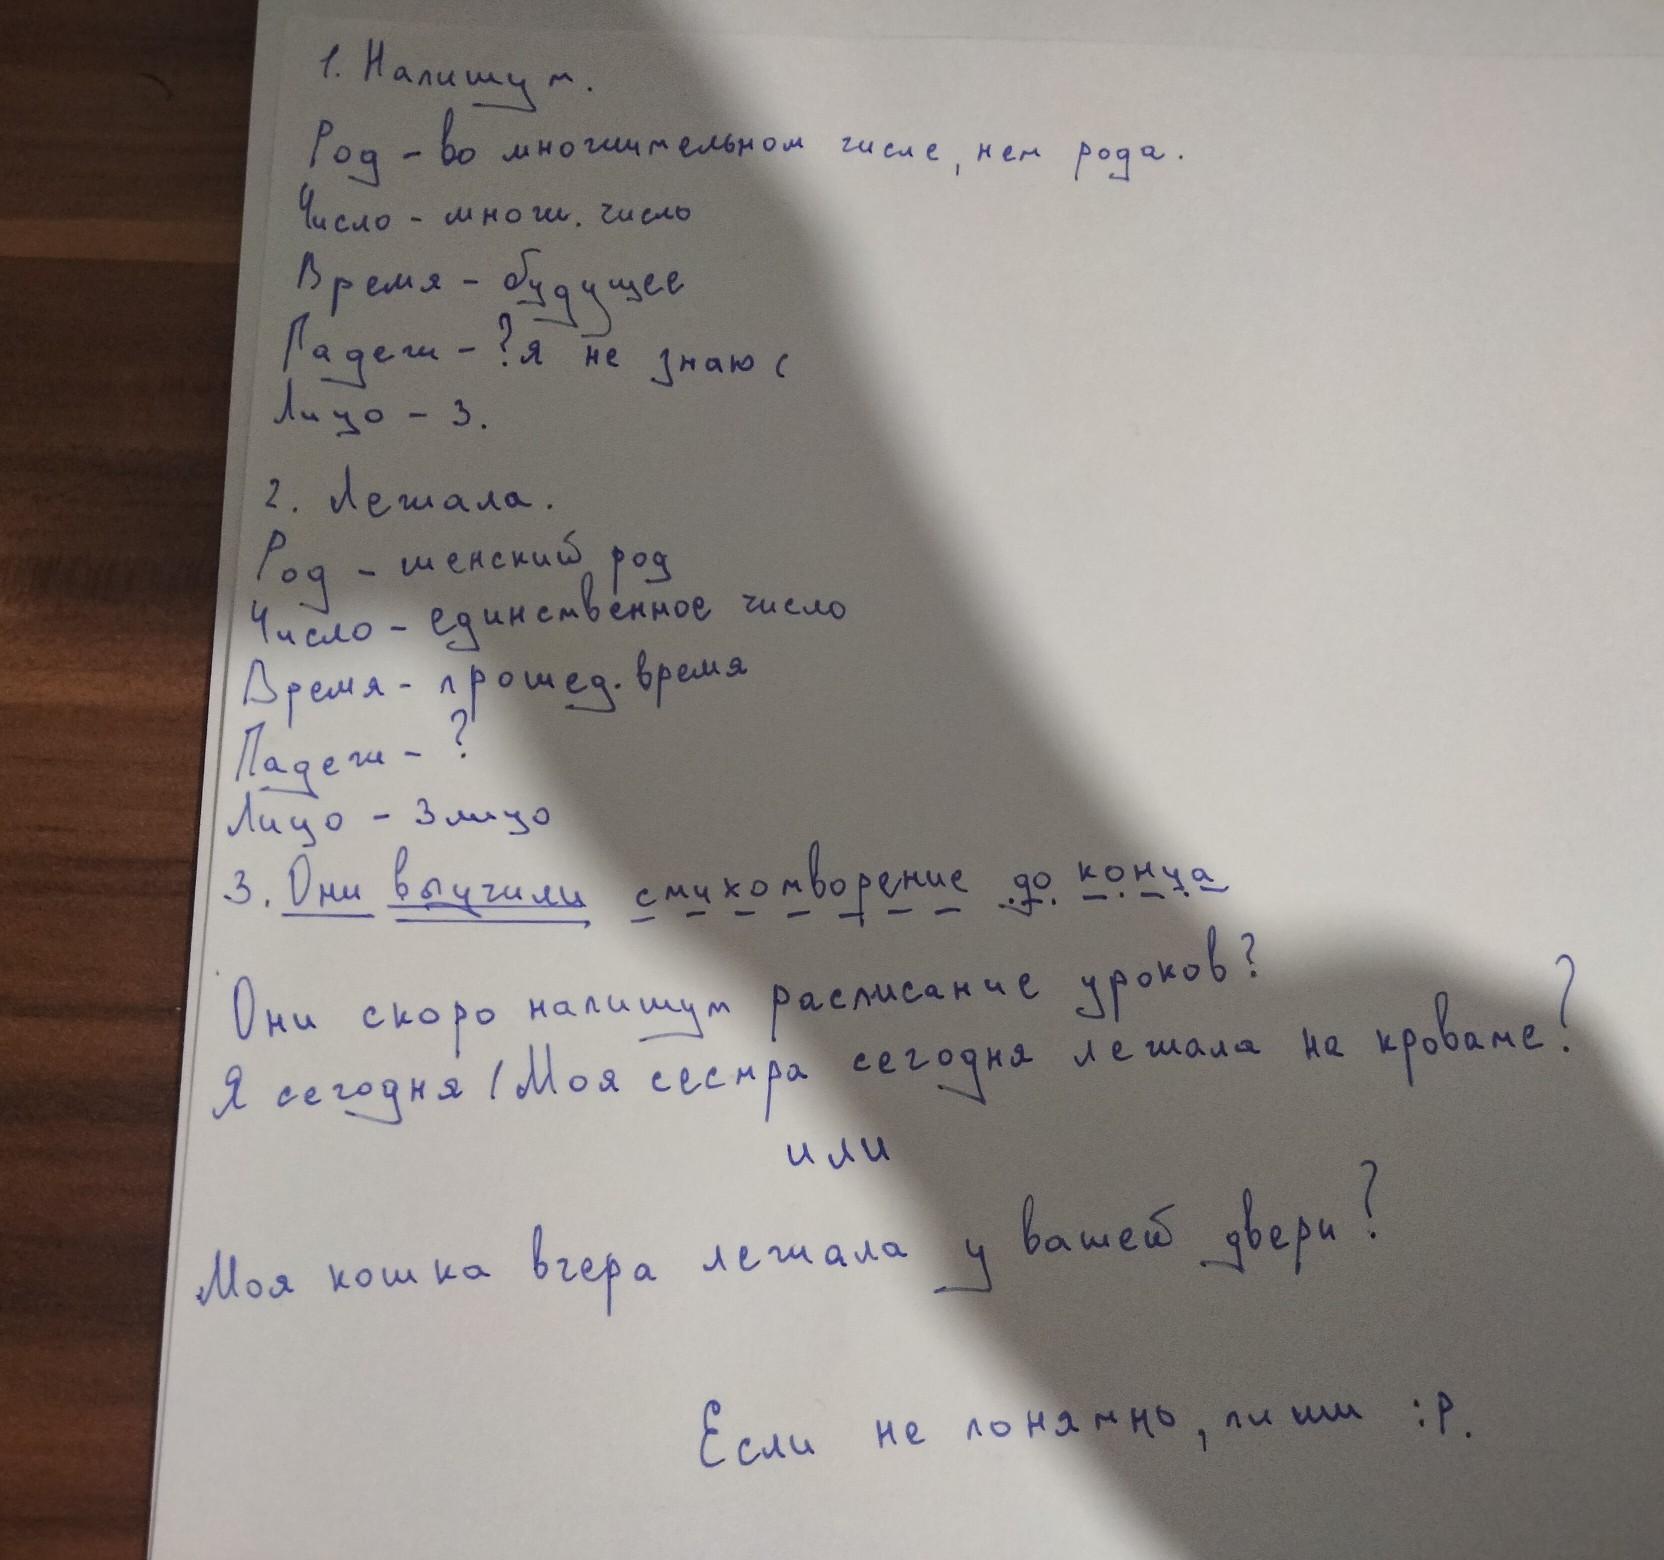 1. Напишут.
Род - во множительном числе, нет рода.
Число - множ. число
Время - будущее
Падеж - ? я не знаю (
Лицо - 3.
2. Лежала.
Род - женский род
Число - единственное число
Время - прошед. время
Падеж - ?
Лицо - 3 лицо
3. Они выучили стихотворение до конца
Они скоро напишут расписание уроков?
Я сегодня / Моя сестра сегодня лежала на кровате?
или
Моя кошка вчера лежала у вашей двери?
Если не понятно, пиши :P.